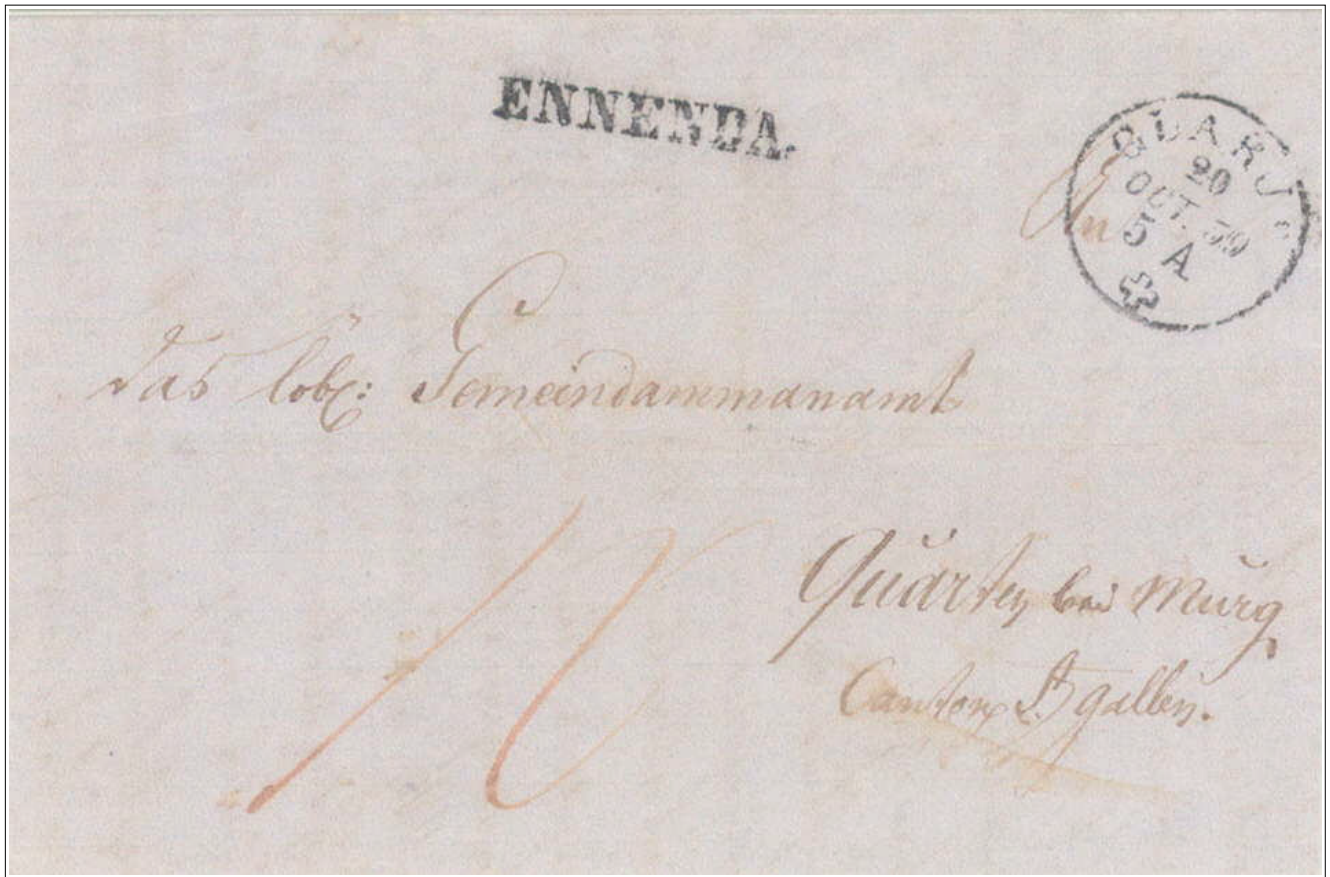 ENNENDA.
GLARUS
20
OCT. 59
5 A
An
das lobl: Gemeindammanamt
Quarten bei Murg
Canton St gallen.
10